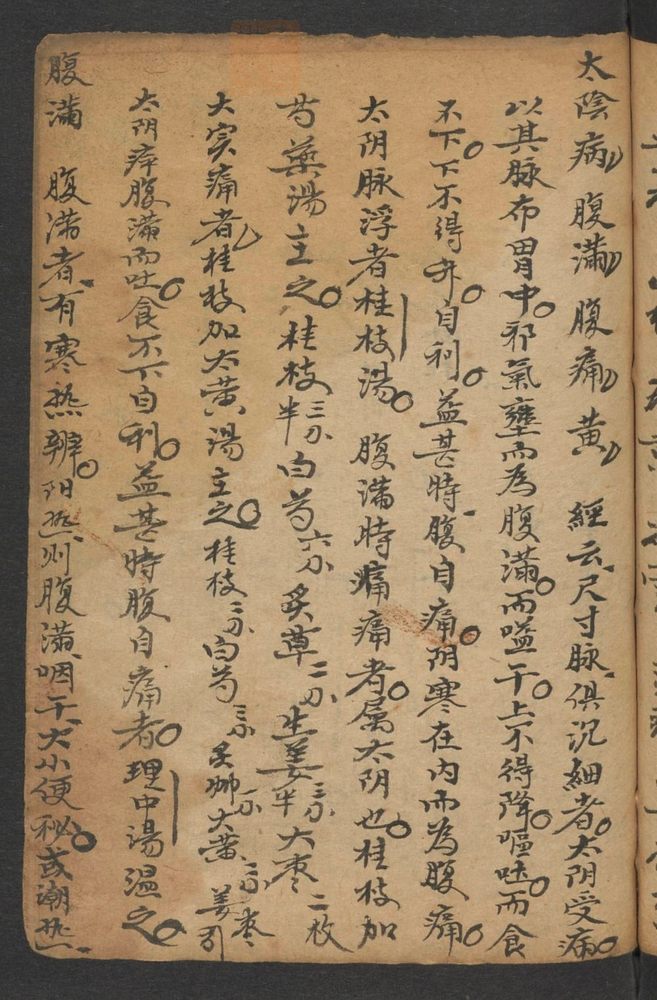 太陰病 腹滿 腹痛 黄 經云尺寸脉俱沉細者太阴受病
以其脉布胃中邪氣壅而為腹滿而嗌干上不得降嘔吐而食
不下下不得升自利益甚時腹自痛阴寒在内而為腹痛
太阴脉浮者桂枝湯 腹满時痛痛者属太阴也桂枝加
芍藥湯主之桂枝三分半白芍六分炙草二分生姜三分半大枣二枚
大实痛者桂枝加大黄湯主之桂枝三分白芍三分炙大黄姜枣引
太阴病腹滿而吐食不下自利益甚時腹自痛者理中湯温之
腹滿 腹滿者有寒热辨阳热则腹滿咽干大小便秘或潮热